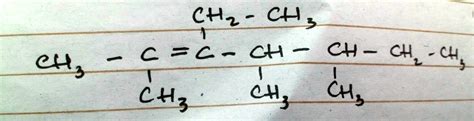 CH₂ - CH₃
CH₃ - C = C - CH - CH - CH₂ - CH₃
CH₃ CH₃ CH₃